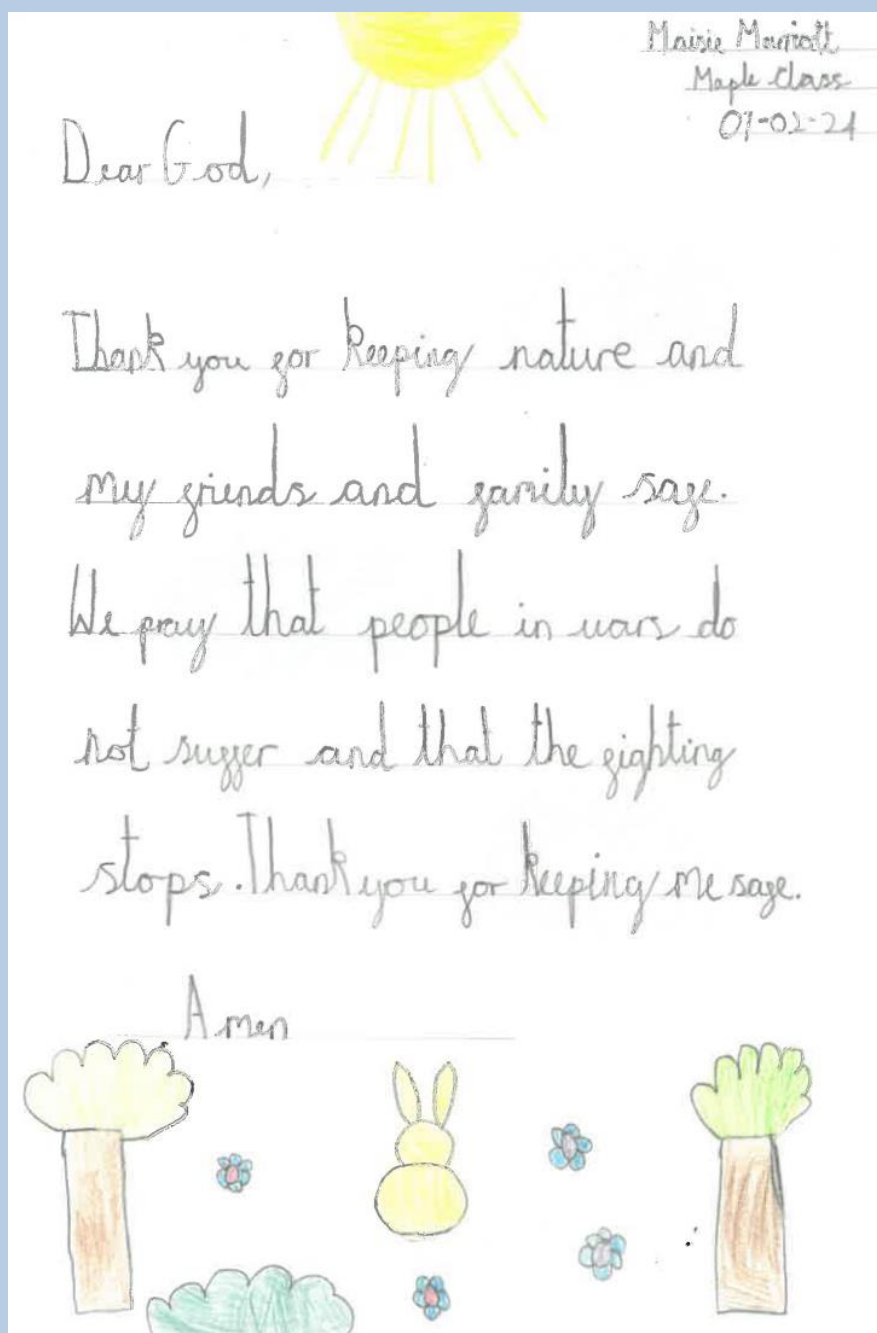 Maisie Marriott
Maple Class
07-02-24
Dear God,
Thank you for keeping nature and
my friends and family safe.
We pray that people in wars do
not suffer and that the fighting
stops. Thank you for keeping me safe.
Amen